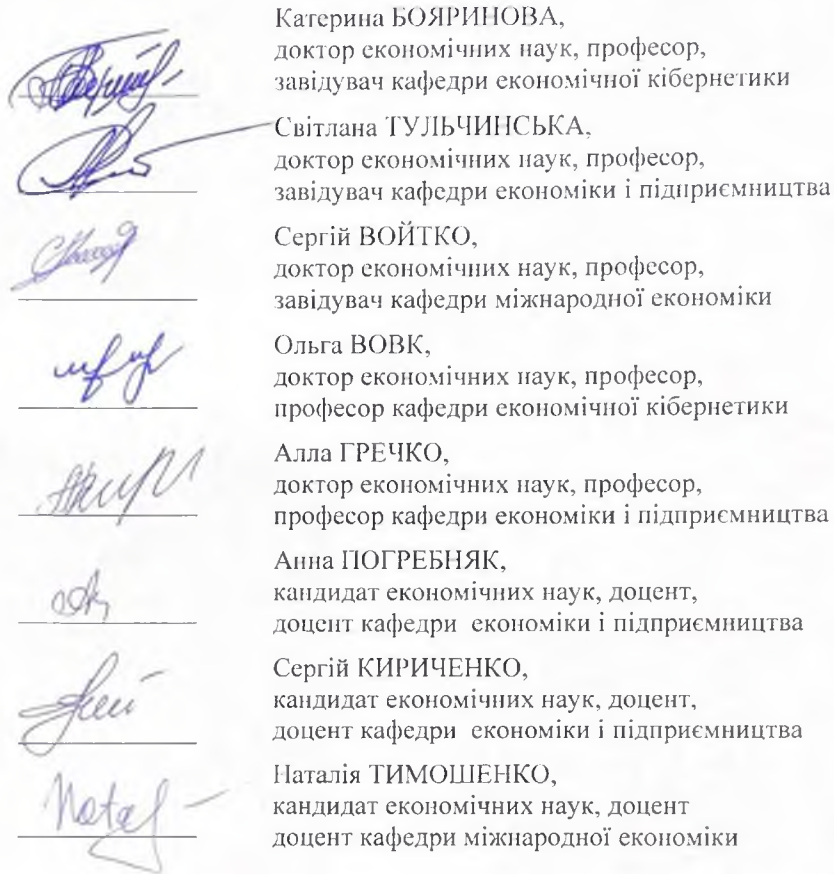 Катерина БОЯРИНОВА,
доктор економічних наук, професор,
завідувач кафедри економічної кібернетики
Світлана ТУЛЬЧИНСЬКА,
доктор економічних наук, професор,
завідувач кафедри економіки і підприємництва
Сергій ВОЙТКО,
доктор економічних наук, професор,
завідувач кафедри міжнародної економіки
Ольга ВОВК,
доктор економічних наук, професор,
професор кафедри економічної кібернетики
Алла ГРЕЧКО,
доктор економічних наук, професор,
професор кафедри економіки і підприємництва
Анна ПОГРЕБНЯК,
кандидат економічних наук, доцент,
доцент кафедри економіки і підприємництва
Сергій КИРИЧЕНКО,
кандидат економічних наук, доцент,
доцент кафедри економіки і підприємництва
Наталія ТИМОШЕНКО,
кандидат економічних наук, доцент
доцент кафедри міжнародної економіки